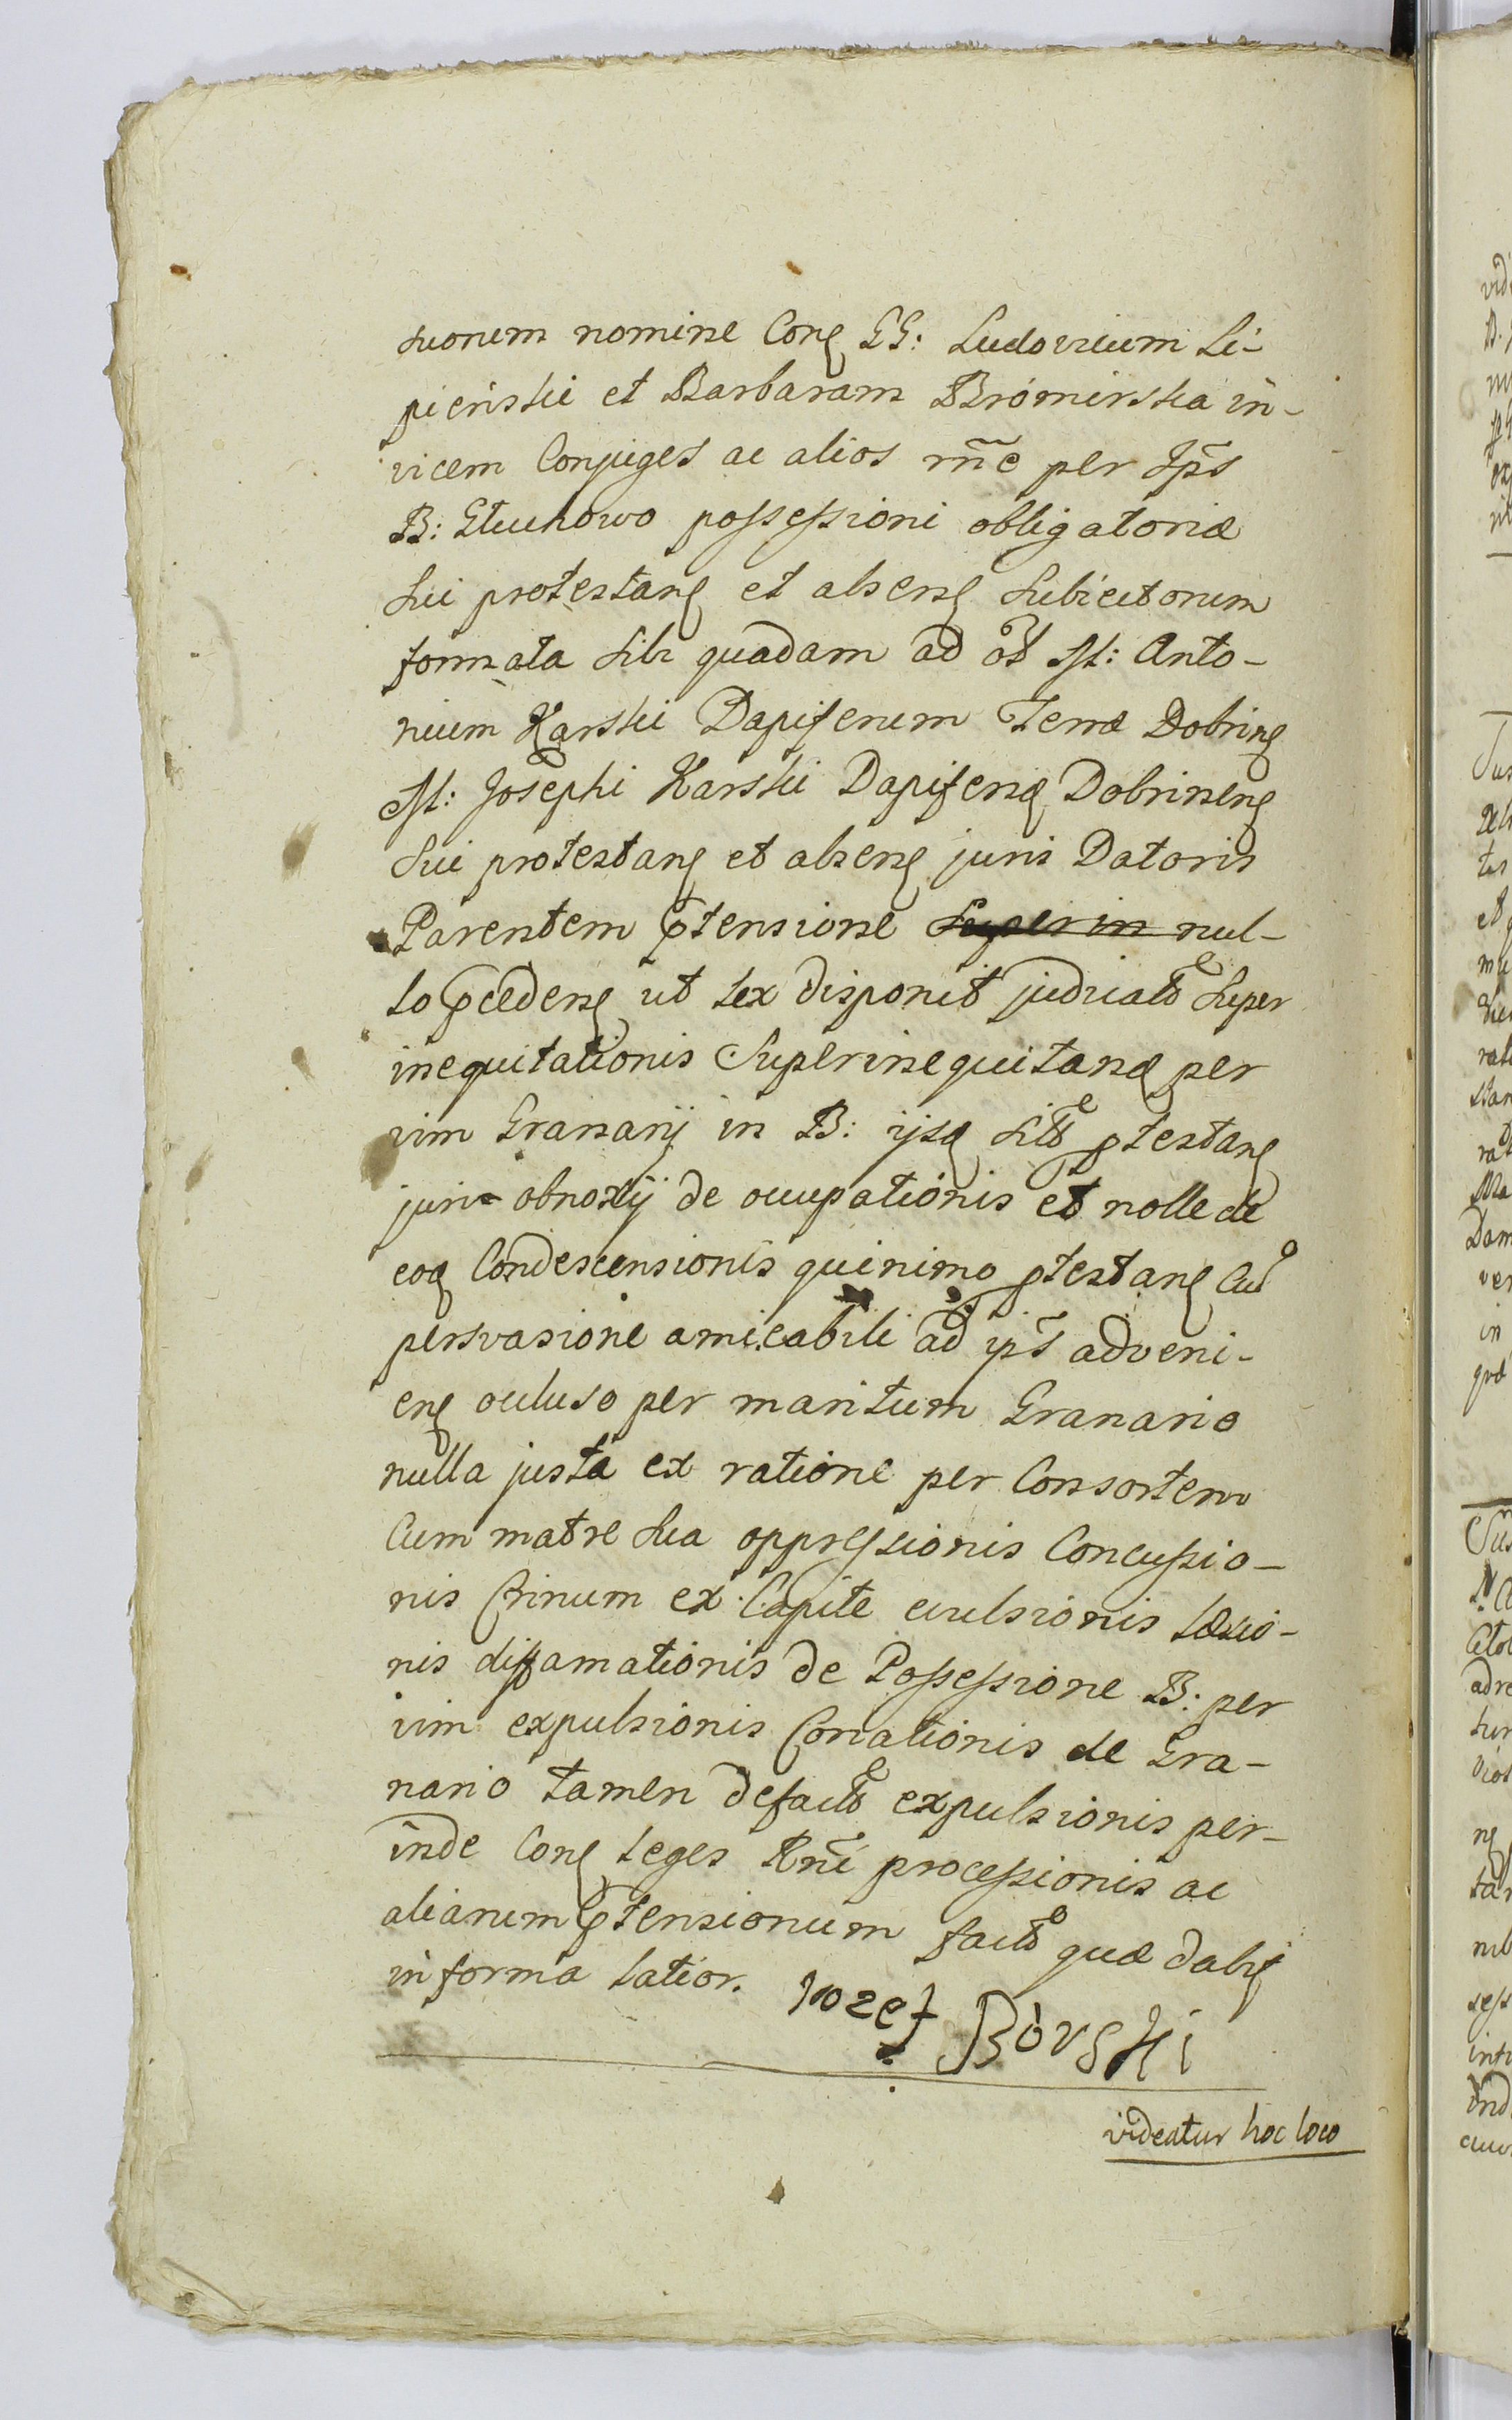 suorum nomine Conȩ GG: Ludovicum Li-
pieński et Barbaram Bromirska in-
vicem Conjuges ac alios rñe per Ips̃
B: Głuchowo possessioni obligatoriæ
Sui protestanȩ et absenȩ Subditorum
formata Sibi quadam ad M: Anto-
nium Karski Dapiferum Terræ Dobrinȩ
M: Josephi Karski Dapiferiȩ Dobrinenȩ
Sui protestanȩ et absenȩ juris Datoris
Parentem p̃tensione Superin nul-
lo p̃cedenȩ ut Lex disponit judicialt͠e Super
inequitationis Superinequitanȩ per
vim Granarij in B: ijsȩ Sitt͠e ptestanȩ
juri obnoxij de occupationis et nolle de
eoȩ Condescensionis quinimo ptestanȩ Cu͠
persvasione amicabili ad ips̃ adveni-
enȩ occluso per maritum Granario
nulla justa ex ratione per Consortem
Cum matre Sua oppressionis Concussio-
nis Crinum ex Capite evulsionis Læsio-
nis diffamationis de Possessione B: per
vim expulsionis Conationis de Gra-
nario tamen defact͠e expulsionis per-
inde Conȩ Leges Rñi processionis ac
aliarum p̃tensionum fact͠o quæ dabȩ
in forma Latior.
Jozef Borski
videatur hoc loco